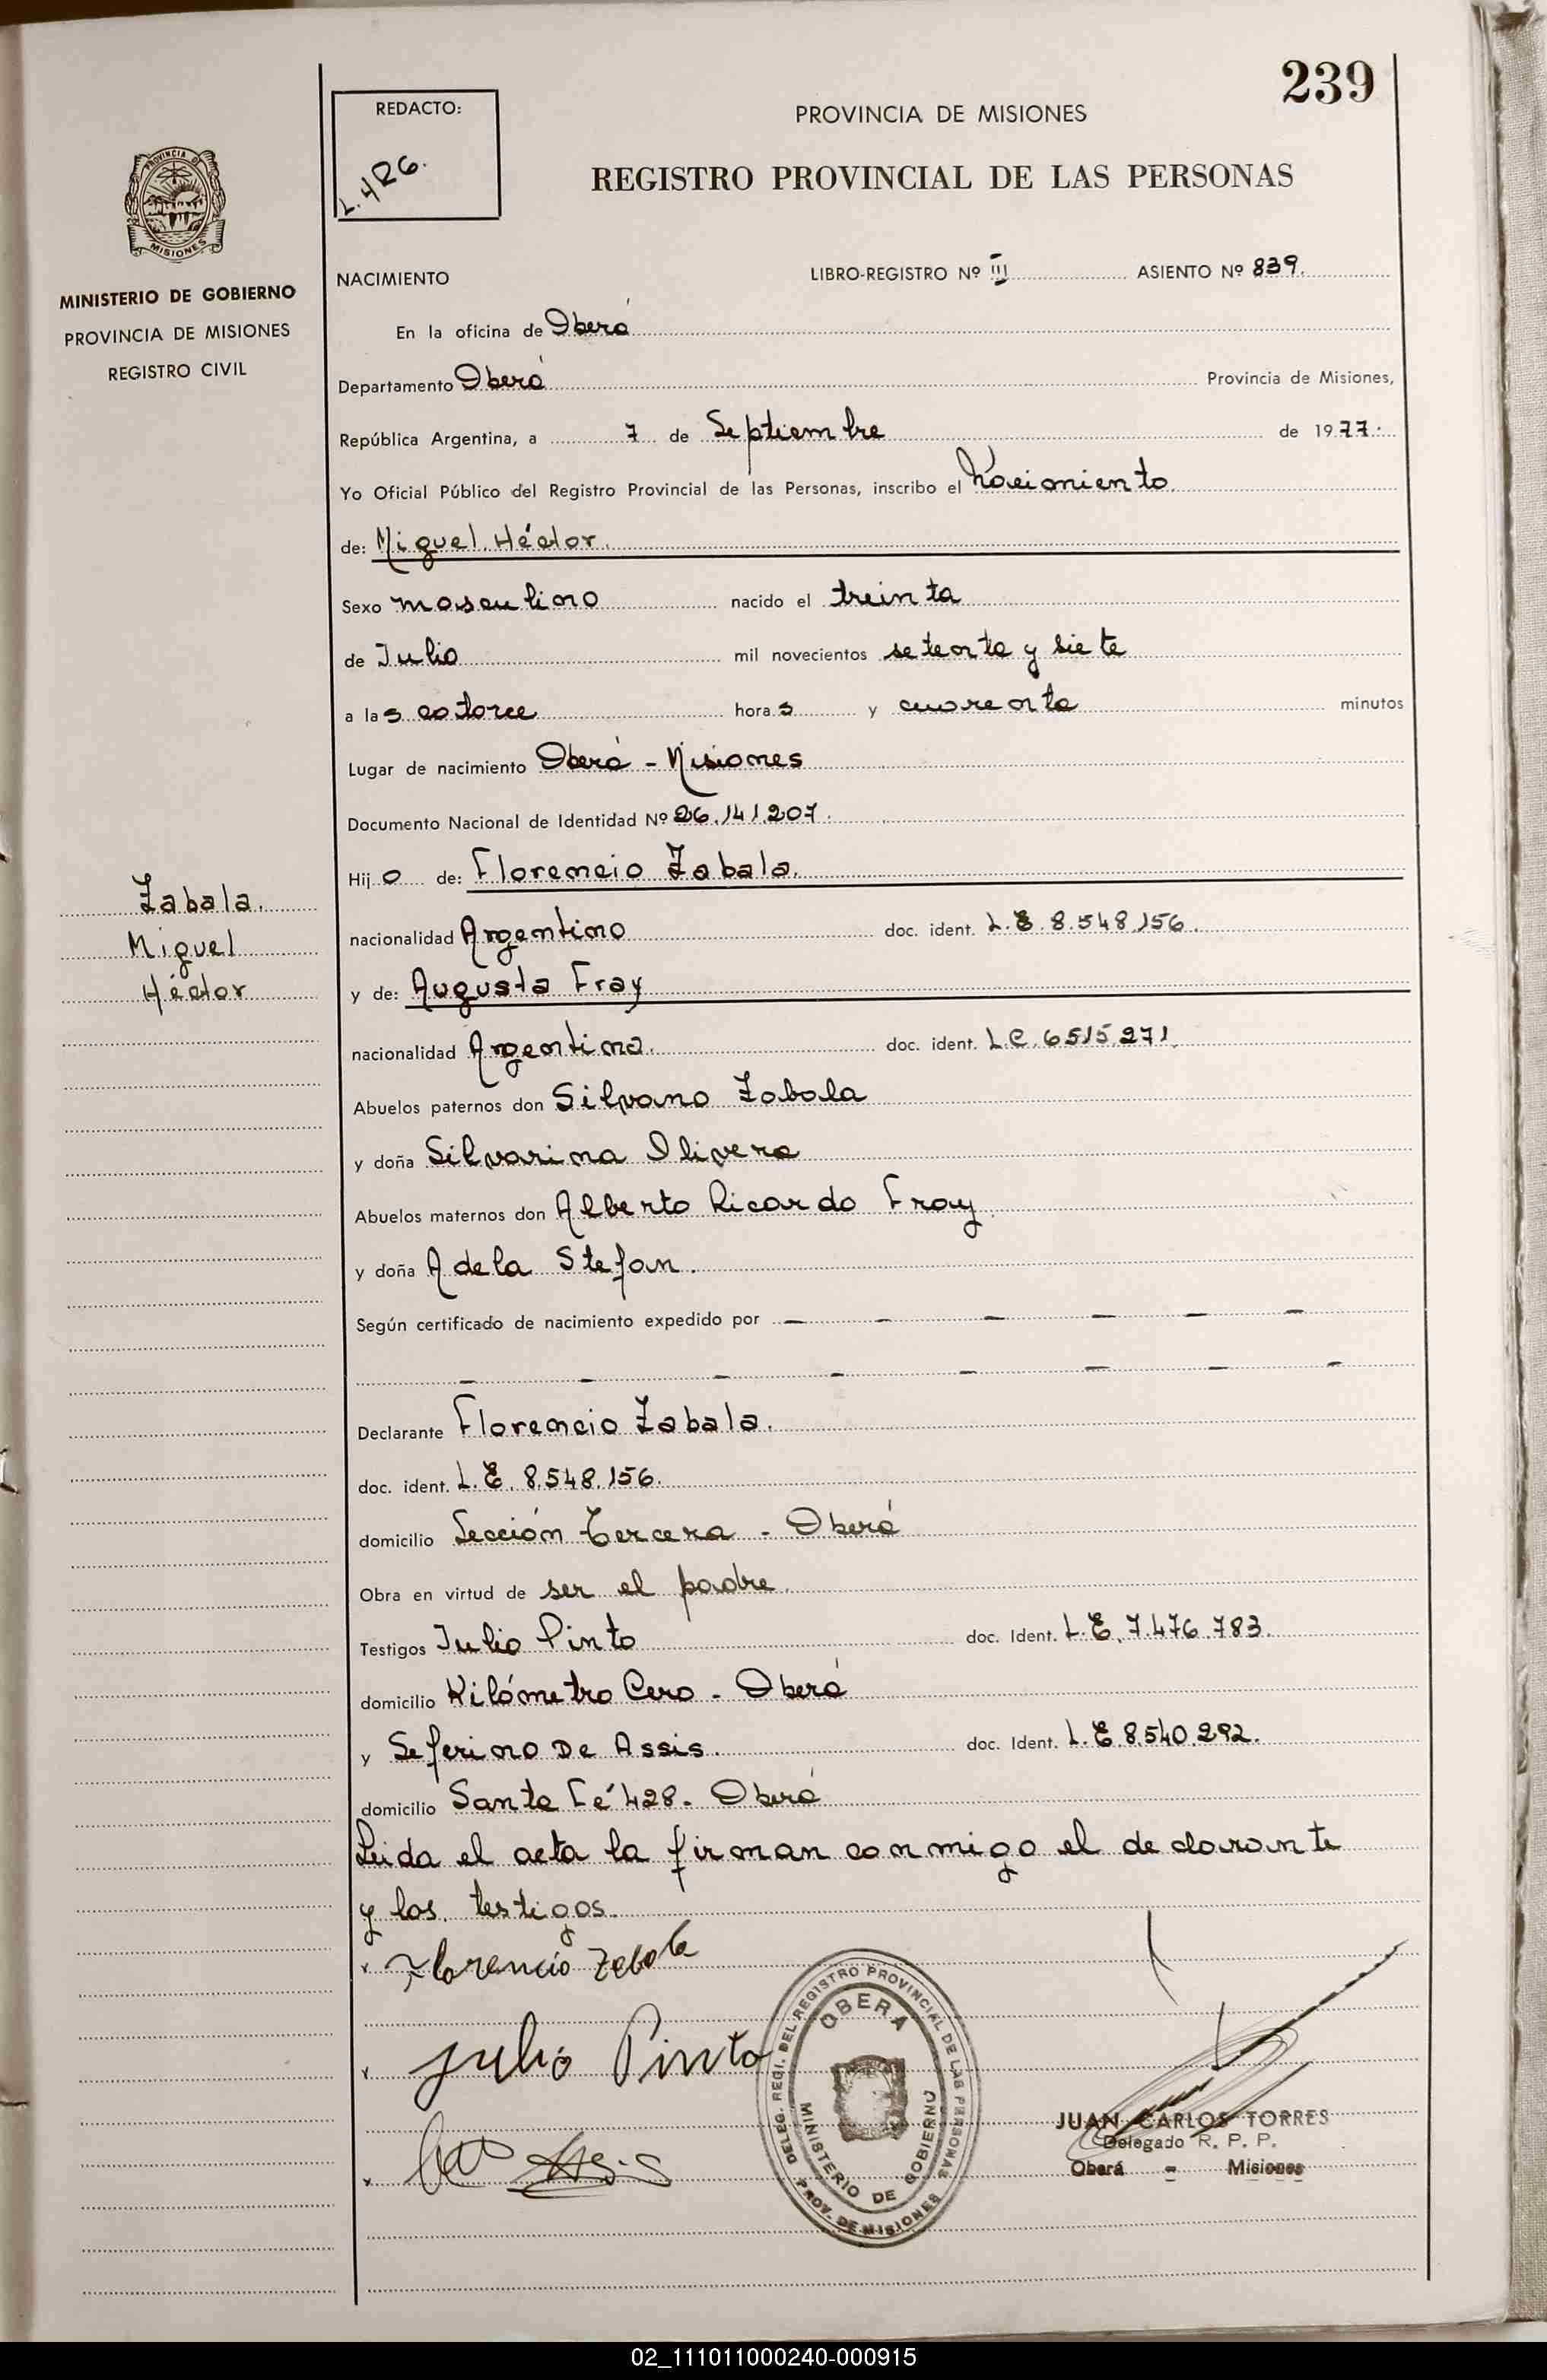 239
REDACTO:
L.4RG.
PROVINCIA DE MISIONES
REGISTRO PROVINCIAL DE LAS PERSONAS
PROVINCIA DE
MISIONES
MINISTERIO DE GOBIERNO
PROVINCIA DE MISIONES
REGISTRO CIVIL
NACIMIENTO LIBRO-REGISTRO Nº III ASIENTO Nº 839.
En la oficina de Oberá
Departamento Oberá Provincia de Misiones,
República Argentina, a 7 de Septiembre de 1977.
Yo Oficial Público del Registro Provincial de las Personas, inscribo el Nacimiento
de: Miguel Héctor.
Sexo masculino nacido el treinta
de Julio mil novecientos setenta y siete
a las catorce horas y cuarenta minutos
Lugar de nacimiento Oberá - Misiones
Documento Nacional de Identidad Nº 26.141.207.
Hijo de: Florencio Zabala.
Zabala.
Miguel
Héctor
nacionalidad Argentino doc. ident. L.E. 8.548.156.
y de: Augusta Fray
nacionalidad Argentina. doc. ident. L.C. 6515.271.
Abuelos paternos don Silvano Zabala
y doña Silvarina Olivera
Abuelos maternos don Alberto Ricardo Fray
y doña Adela Stefan.
Según certificado de nacimiento expedido por — — — — — —
— — — — — — — —
Declarante Florencio Zabala.
doc. ident. L.E. 8.548.156.
domicilio Sección Tercera - Oberá
Obra en virtud de ser el padre.
Testigos Julio Pinto doc. Ident. L.E. 7.476.783.
domicilio Kilómetro Cero - Oberá
y Seferino De Assis. doc. Ident. L.E. 8.540.292.
domicilio Santa Fé 428. Oberá
Leida el acta la firman conmigo el declarante
y los testigos.
x Florencio Zabala
x Julio Pinto
x
DELEG. REGI. DEL REGISTRO PROVINCIAL DE LAS PERSONAS
OBERA
MINISTERIO DE GOBIERNO
PROV. DE MISIONES
JUAN CARLOS TORRES
Delegado R. P. P.
Oberá - Misiones
02_111011000240-000915